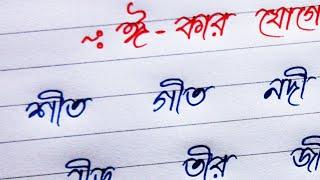 ঃ ঈ - কার যোগে
শীত গীত নদী
তীর